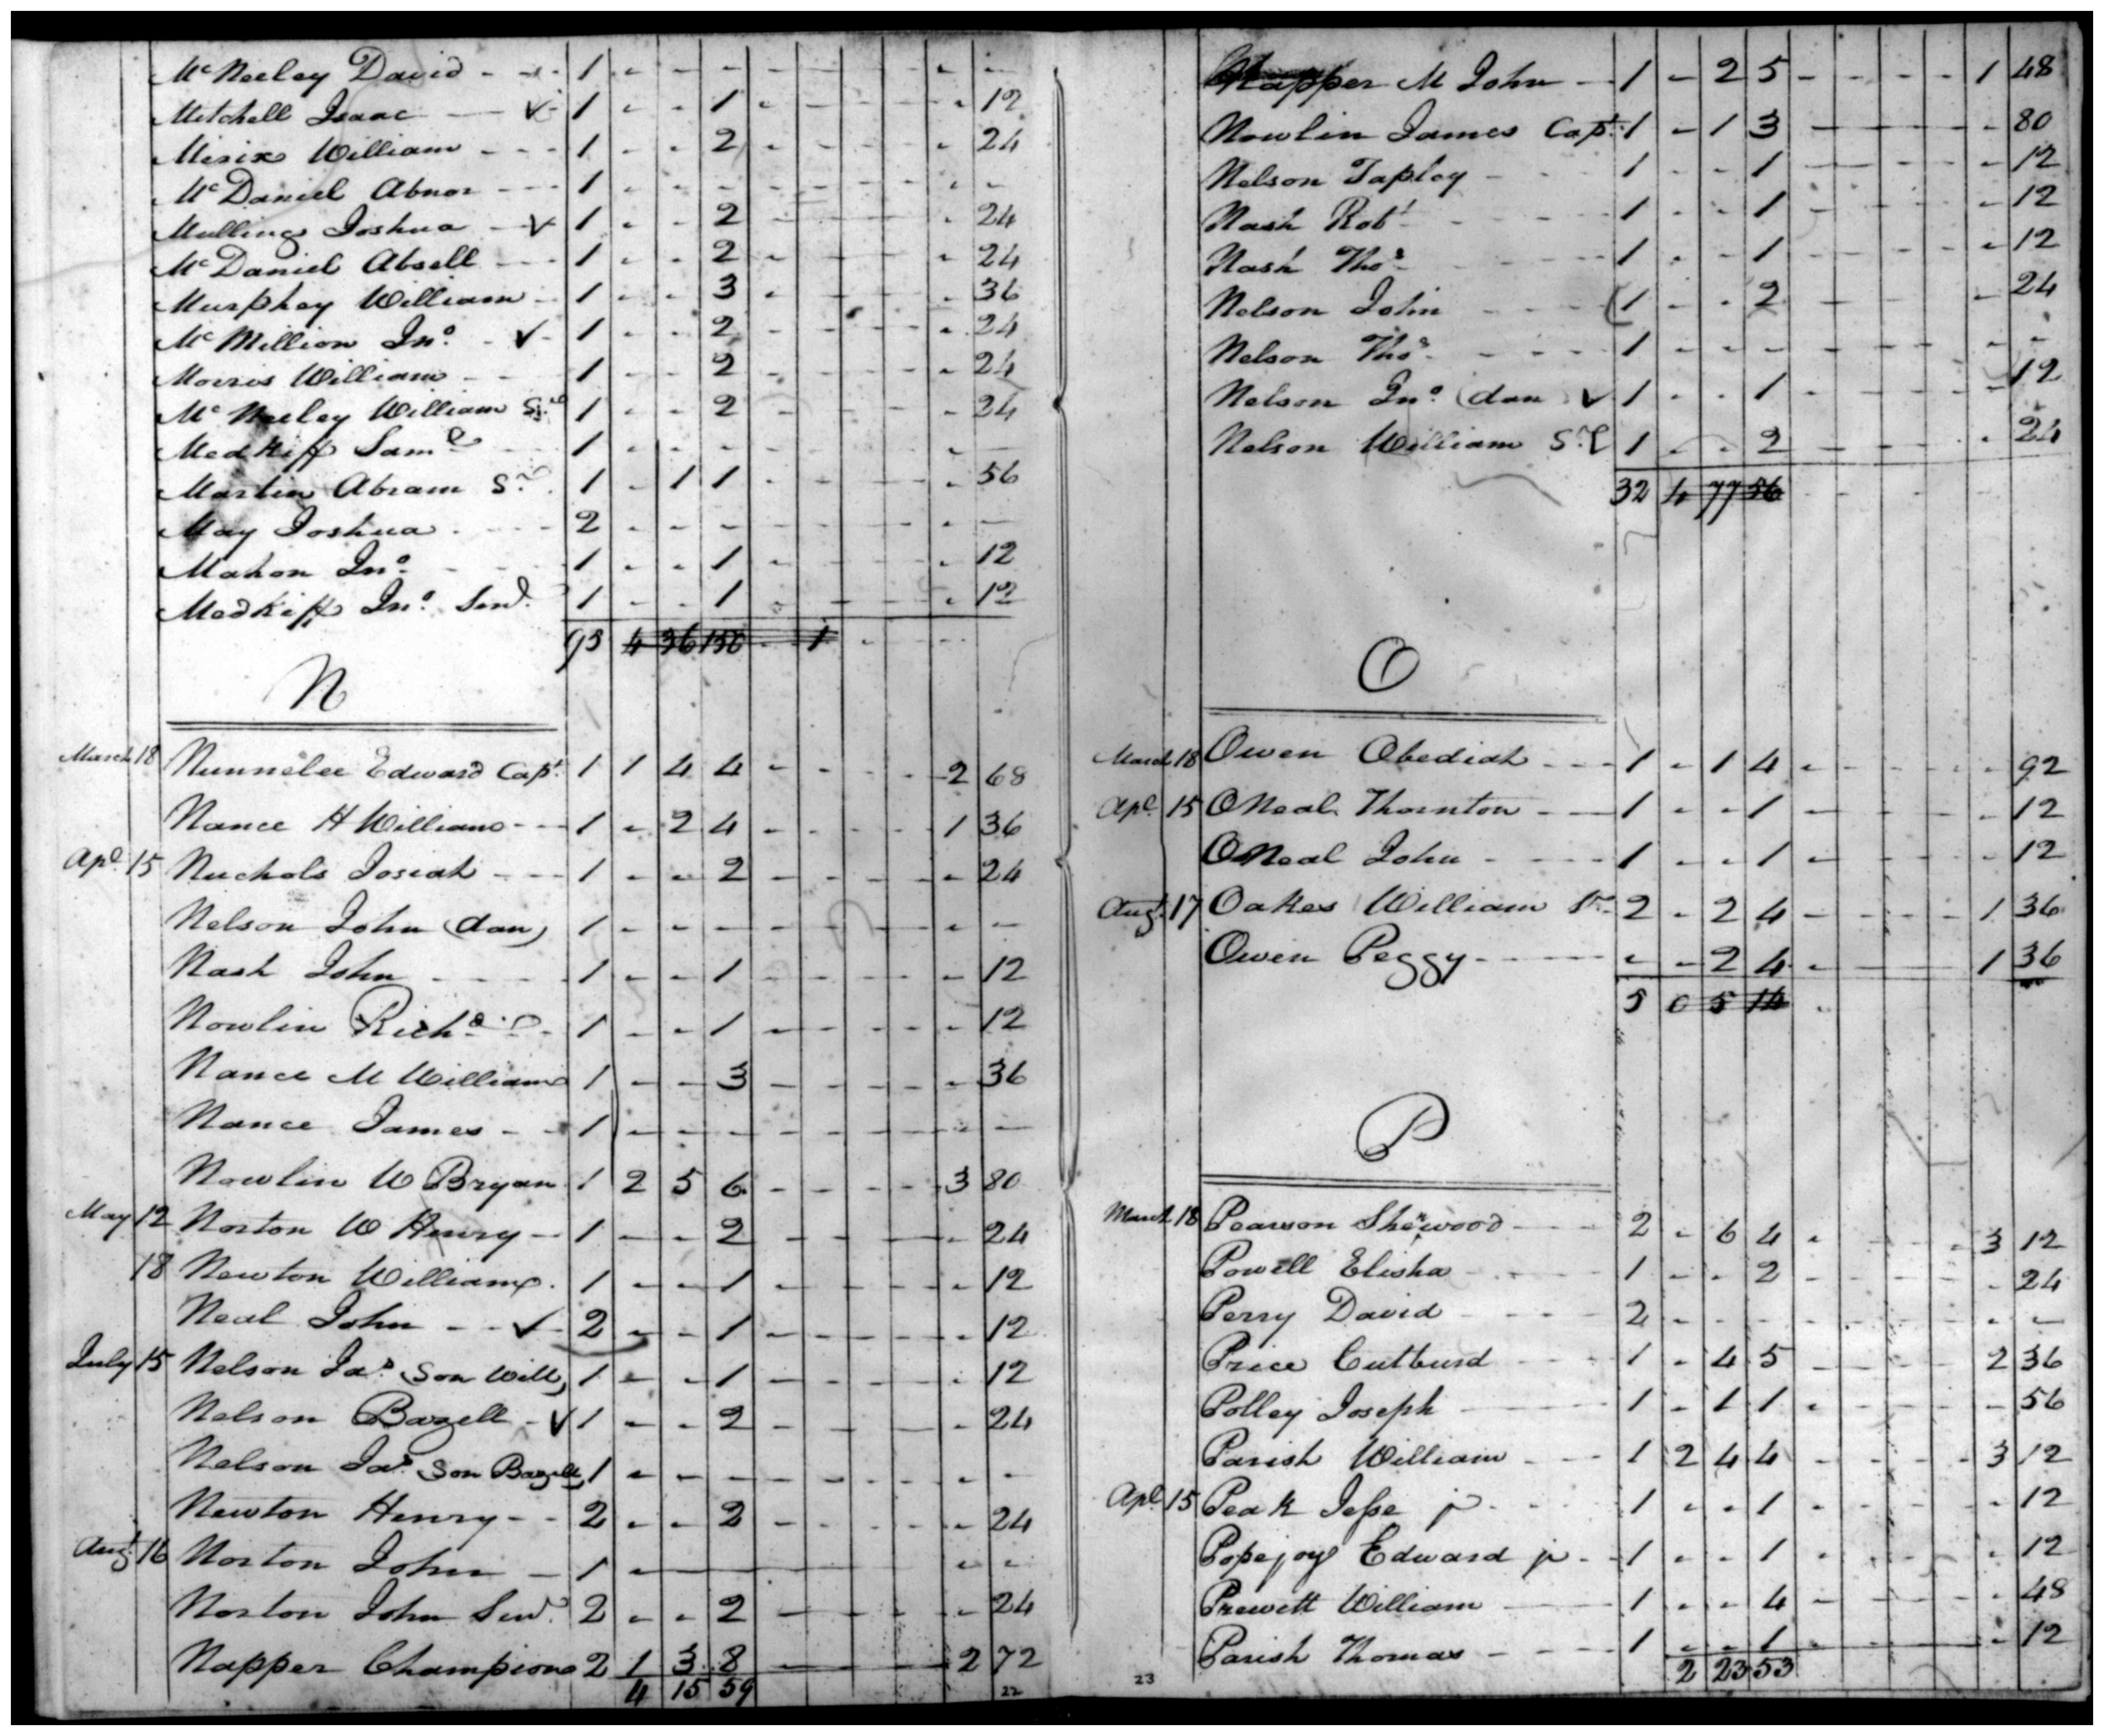 McNeeley David - - - 1 - - - - - - - - -
Mitchell Isaac - - V 1 - - 1 - - - - - 12
Misix William - - - 1 - - 2 - - - - - 24
McDaniel Abnor - - - 1 - - - - - - - - -
Mullings Joshua - V 1 - - 2 - - - - - 24
McDaniel Absell - - - 1 - - 2 - - - - - 24
Murphey William - 1 - - 3 - - - - - 36
McMillion Jno. - V - 1 - - 2 - - - - - 24
Morris William - - 1 - - 2 - - - - - 24
McNeeley William Sr 1 - - 2 - - - - - 24
Medkiff Saml - - 1 - - - - - - - - -
Martin Abram Sr. 1 - 1 1 - - - - - 56
May Joshua - - - 2 - - - - - - - - -
Mahon Jno. - - - 1 - - 1 - - - - - 12
Medkiff Jno. Senr. 1 - - 1 - - - - - 12
93 4 36 150 - 1 - - -
N
March 18 Nunnelee Edward Capt. 1 1 4 4 - - - - 2 68
Nance H William - - 1 - 2 4 - - - - 1 36
Apl. 15 Nuchols Josiah - - - 1 - - 2 - - - - - 24
Nelson John (dan) 1 - - - - - - - - -
Nash John - - - - 1 - - 1 - - - - - 12
Nowlin Richd. - 1 - - 1 - - - - - 12
Nance M William 1 - - 3 - - - - - 36
Nance James - - 1 - - - - - - - - -
Nowlin W Bryan 1 2 5 6 - - - - 3 80
May 12 Norton W Henry - 1 - - 2 - - - - - 24
18 Newton William 1 - - 1 - - - - - 12
Neal John - - V - 2 - - 1 - - - - - 12
July 15 Nelson Jas. (Son Will) 1 - - 1 - - - - - 12
Nelson Bazell - V 1 - - 2 - - - - - 24
Nelson Jas. Son Bazell) 1 - - - - - - - - -
Newton Henry - - 2 - - 2 - - - - - 24
Augt. 16 Norton John - 1 - - - - - - - -
Norton John Senr. 2 - - 2 - - - - - 24
Napper Champion 2 1 3 8 - - - - 2 72
4 15 59
22
Napper M John - 1 - 2 5 - - - - 1 48
Nowlin James Capt. 1 - 1 3 - - - - - 80
Nelson Tapley - - - 1 - - 1 - - - - - 12
Nash Robt - - - - 1 - - 1 - - - - - 12
Nash Thos. - - - - 1 - - 1 - - - - - 12
Nelson John - - - - (1 - - 2 - - - - - 24
Nelson Thos. - - - - 1 - - - - - - - - -
Nelson Jno. (dan V 1 - - 1 - - - - - 12
Nelson William Sr 1 - - 2 - - - - - 24
32 4 77 56 - - -
O
March 18 Owen Obediah - - - 1 - 1 4 - - - - - 92
Apl. 15 ONeal Thornton - - 1 - - 1 - - - - - 12
ONeal John - - - - 1 - - 1 - - - - - 12
Augt. 17 Oakes William Sr. 2 - 2 4 - - - - 1 36
Owen Peggy - - - - - - 2 4 - - - - 1 36
5 0 5 14 -
P
March 18 Pearson Sherwood - - 2 - 6 4 - - - - 3 12
Powell Elisha - - - 1 - - 2 - - - - - 24
Perry David - - - - 2 - - - - - - - - -
Price Cutburd - - - 1 - 4 5 - - - - 2 36
Polley Joseph - - - 1 - 1 1 - - - - - 56
Parish William - - - 1 2 4 4 - - - - 3 12
Apl. 15 Peak Jesse jr - - - 1 - - 1 - - - - - 12
Popejoy Edward jr - - 1 - - 1 - - - - - 12
Prewett William - - 1 - - 4 - - - - - 48
Parish Thomas - - - 1 - - 1 - - - - - 12
2 23 53
23